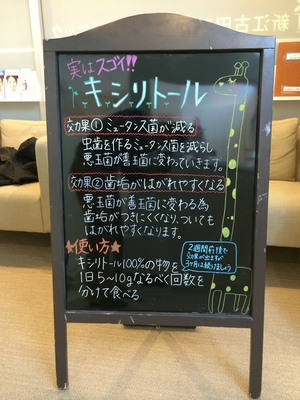 新江古田
実はスゴイ!!
キシリトール
効果① ミュータンス菌が減る
虫歯を作るミュータンス菌を減らし
悪玉菌が善玉菌に変わっていきます。
効果② 歯垢がはがれやすくなる
悪玉菌が善玉菌に変わる為
歯垢がつきにくくなり、ついても
はがれやすくなります。
★使い方★
キシリトール100%の物を
1日5~10gなるべく回数を
分けて食べる
2週間前後で
効果が出ますが
3ヶ月は続けましょう